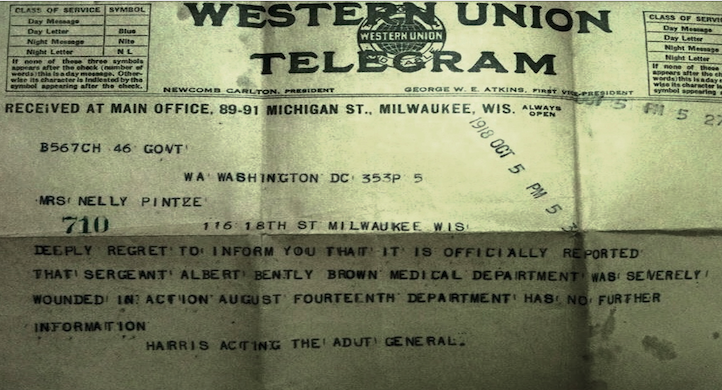 CLASS OF SERVICE SYMBOL
Day Message
Day Letter Blue
Night Message Nite
Night Letter N L
If none of these three symbols
appears after the check (number of
words) this is a day message. Other-
wise its character is indicated by the
symbol appearing after the check.
WESTERN UNION
WESTERN UNION
TELEGRAM
NEWCOMB CARLTON, PRESIDENT GEORGE W. E. ATKINS, FIRST VICE-PRESIDENT
CLASS OF SERVI
Day Message
Day Letter
Night Message
Night Letter
If none of these
appears after the
words) this is a da
wise its character is
symbol appearing a
RECEIVED AT MAIN OFFICE, 89-91 MICHIGAN ST., MILWAUKEE, WIS. ALWAYS OPEN
5 PM 5 27
1918 OCT 5 PM 5
B567CH 46 GOVT
WA WASHINGTON DC 353P 5
MRS NELLY PINTZE
710 116 18TH ST MILWAUKEE WIS
DEEPLY REGRET TO INFORM YOU THAT IT IS OFFICIALLY REPORTED
THAT SERGEANT ALBERT BENTLY BROWN MEDICAL DEPARTMENT WAS SEVERELY
WOUNDED IN ACTION AUGUST FOURTEENTH DEPARTMENT HAS NO FURTHER
INFORMATION
HARRIS ACTING THE ADUT GENERAL.